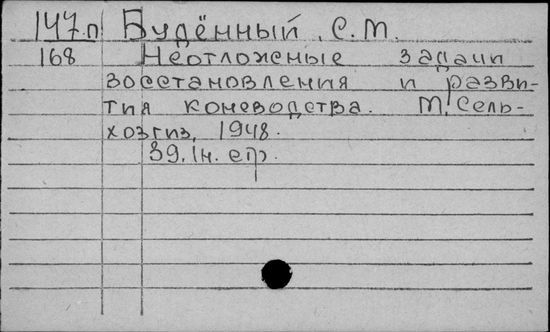 147.п Будённый, С. М.
168 Неотложные задачи
восстановления и разви-
тия коневодства. М., Сель-
хозгиз, 1948.
39, 1н. стр.